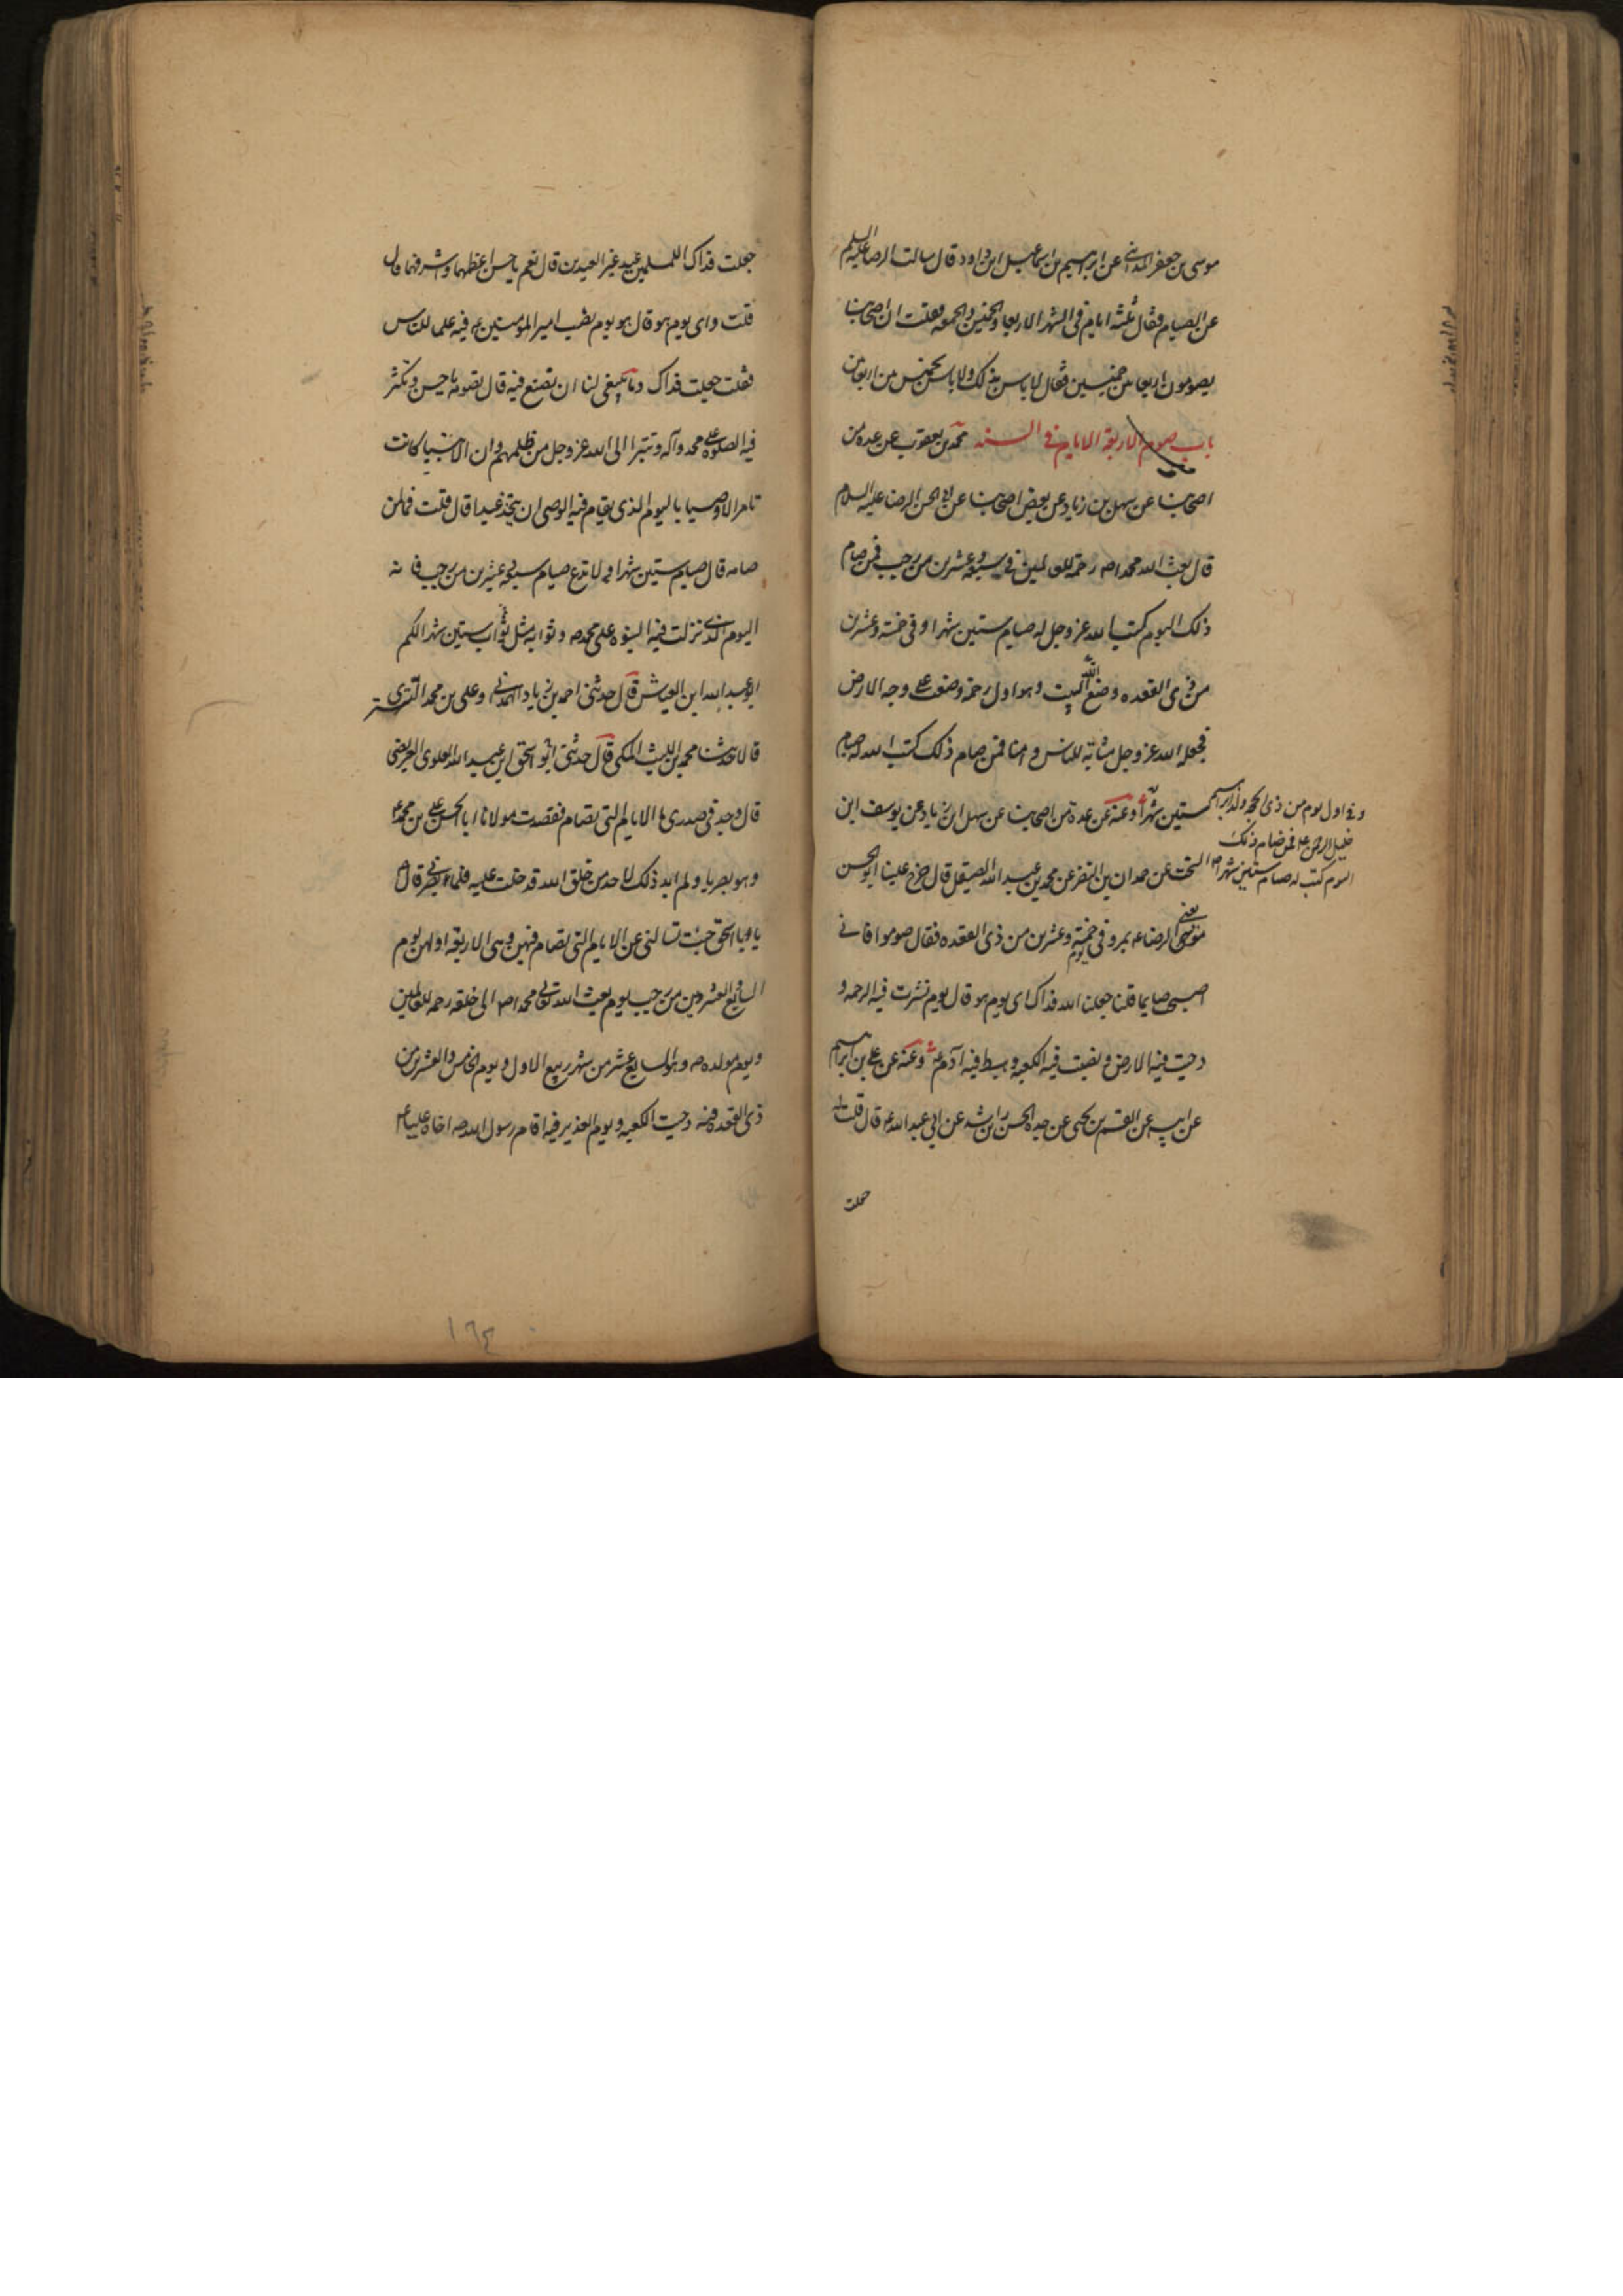 موسى بن جعفر المدائني عن ابراهيم بن اسماعيل ابن داود قال سالت الرضا عليه السلم
عن الصيام فقال ثلثة ايام في الشهر الاربعا والخميس والجمعه فقلت ان اصحابنا
يصومون اربعا بين خميسين فقال لا باس بذلك ولا باس بخميس بين اربعائين
باب صوم الاربعة الايام في السنه محمد بن يعقوب عن عده من
اصحابنا عن سهل بن زياد عن بعض اصحابنا عن ابي الحسن الرضا عليه السلام
قال بعث الله محمدا صه رحمة للعالمين في سبعه وعشرين من رجب فمن صام
ذلك اليوم كتب الله عز وجل له صيام ستين شهرا وفي خمسة وعشرين
من ذي القعده وضع الله البيت وهو اول رحمة وضعت على وجه الارض
فجعله الله عز وجل مثابة للناس وامنا فمن صام ذلك كتب الله له صيام
ستين شهرا وعنه عن عدة من اصحابنا عن سهل ابن زياد عن يوسف ابن
وفي اول يوم من ذي الحجه ولد ابراهيم
خليل الرحمن عه فمن صام ذلك
اليوم كتب له صيام ستين شهرا صه
السخت عن حمدان بن النضر عن محمد بن عبيد الله الصيقل قال خرج علينا ابو الحسن
يعني الرضا عه بمرو في يوم خمسة وعشرين من ذي القعده فقال صوموا فاني
اصبحت صايما قلنا جعلنا الله فداك اي يوم هو قال يوم نشرت فيه الرحمه و
دحيت فيه الارض ونصبت فيه الكعبه وهبط فيه آدم عه وعنه عن علي بن ابراهيم
عن ابيه عن القسم بن يحيى عن جده الحسن ابن راشد عن ابي عبد الله عه قال قلت له
جعلت
جعلت فداك للمسلمين عيد غير العيدين قال نعم يا حسن اعظمهما وشرفهما قال
قلت واي يوم هو قال هو يوم نصب امير المؤمنين عه فيه علما للناس
فقلت جعلت فداك وما ينبغي لنا ان نصنع فيه قال تصومه يا حسن وتكثر
فيه الصلوة على محمد وآله وتتبرا الى الله عز وجل من ظلمهم وان الانبيا كانت
تامر الاوصيا باليوم الذي يقام فيه الوصي ان يتخذ عيدا قال قلت فما لمن
صامه قال صيام ستين شهرا ولا تدع صيام سبعه وعشرين من رجب فانه
اليوم الذي نزلت فيه النبوه على محمد صه وثوابه مثل ثواب ستين شهرا لكم
ابو عبد الله ابن العياش قال حدثني احمد بن زياد الهمداني وعلي بن محمد التستري
قالا حدثنا محمد بن الليث المكي قال حدثني ابو اسحق ابن عبد الله العلوي العريضي
قال وجد في صدري ما الايام التي تصام فقصدت مولانا ابا الحسن علي بن محمد عه
وهو بصريا ولم ابد ذلك لاحد من خلق الله قد خلت عليه فلما بصرني قال
يا ابا اسحق جئت تسالني عن الايام التي تصام فيهن وهي الاربعه اولهن يوم
السابع والعشرين من رجب يوم بعث الله تعالى محمدا صه الى خلقه رحمه للعالمين
ويوم مولده صه وهو السابع عشر من شهر ربيع الاول ويوم الخامس والعشرين من
ذي القعده فيه دحيت الكعبه ويوم الغدير فيه اقام رسول الله صه اخاه عليا عه